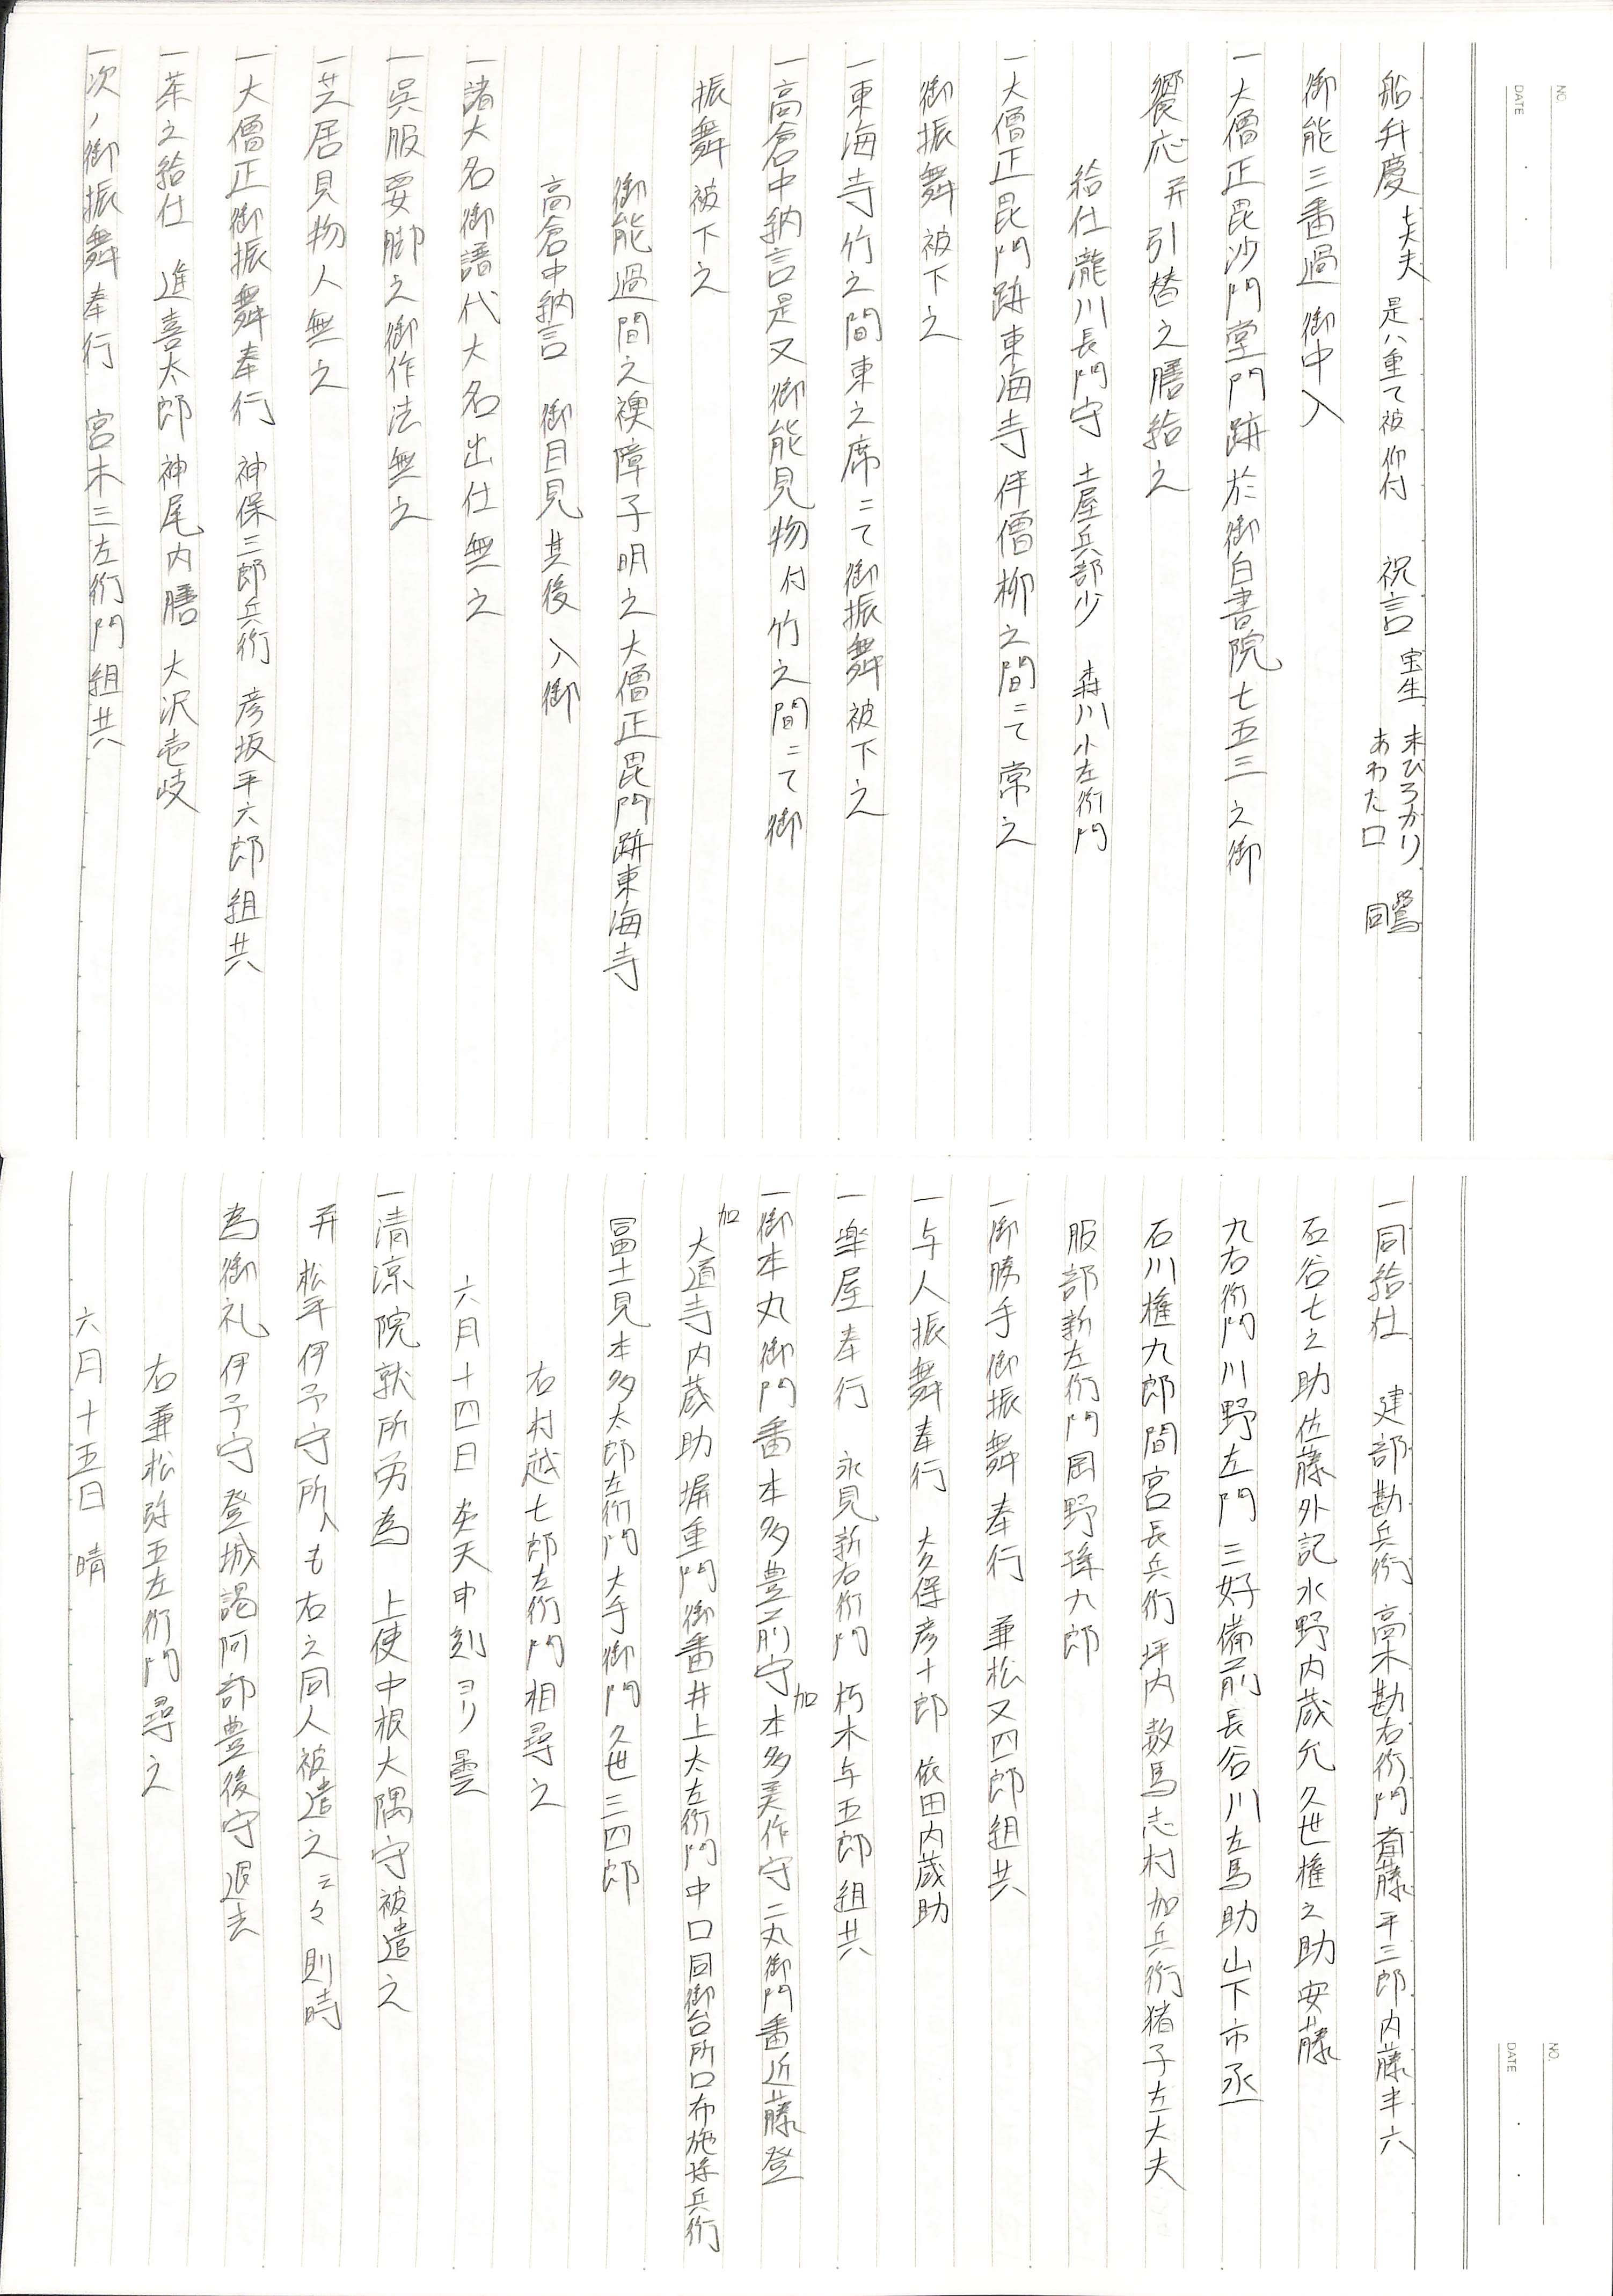 NO.
DATE
船弁慶 七太夫 是ハ重て被仰付 祝言 宝生 末ひろかり 鷺
あわた口 同
御能三番過 御中入
一大僧正毘沙門堂門跡於御白書院七五三之御
饗応并引替之膳給之
給仕瀧川長門守 土屋兵部少 森川小左衛門
一大僧正毘門跡東海寺伴僧柳之間ニて常之
御振舞被下之
一東海寺竹之間東之席ニて御振舞被下之
一高倉中納言是又御能見物付竹之間ニて御
振舞被下之
御能過間之襖障子明之大僧正毘門跡東海寺
高倉中納言 御目見其後 入御
一諸大名御譜代大名出仕無之
一呉服要脚之御作法無之
一芝居見物人無之
一大僧正御振舞奉行 神保三郎兵衛 彦坂平六郎組共
一茶之給仕 進喜太郎 神尾内膳 大沢壱岐
一次ノ御振舞奉行 宮木三左衛門組共
NO.
DATE
一同給仕 建部勘兵衛 高木勘右衛門 首藤平三郎 内藤半六
石谷七之助 佐藤外記 水野内蔵允 久世権之助 安藤
九右衛門 川野左門 三好備前 長谷川左馬助 山下市丞
石川権九郎 間宮長兵衛 坪内数馬 志村加兵衛 猪子左大夫
服部新左衛門 岡野孫九郎
一御勝手御振舞奉行 兼松又四郎組共
一与人振舞奉行 大久保彦十郎 依田内蔵助
一楽屋奉行 永見新右衛門 朽木与五郎組共
一御本丸御門番 本多豊前守 加 本多美作守 二丸御門番近藤登
加 大道寺内蔵助 塀重門御番井上太左衛門 中口同御台所口布施孫兵衛
冨士見本多太郎左衛門 大手御門久世三四郎
右村越七郎左衛門相尋之
六月十四日 炎天申刻ヨリ曇
一清涼院就所労為 上使中根大隅守被遣之
并松平伊予守所へも右之同人被遣之云々則時
為御礼伊予守登城謁阿部豊後守退去
右兼松弥五左衛門尋之
六月十五日 晴